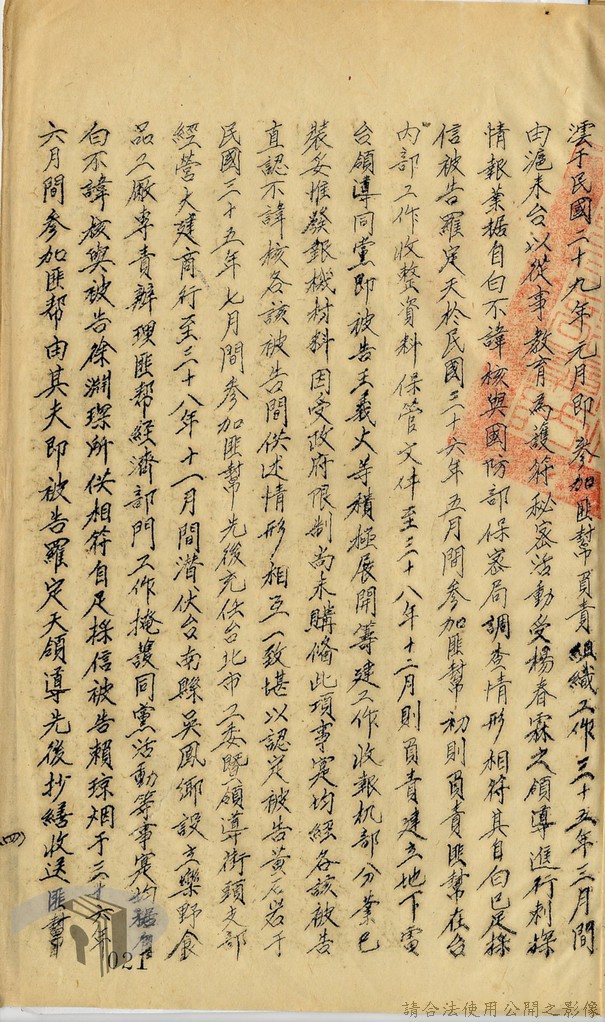 澐于民國二十九年元月即參加匪幫負責組織工作三十五年三月間
由滬來台以從事教育為護符秘密活動受楊春霖之領導進行刺探
情報業據自白不諱核與國防部保密局調查情形相符其自白已足採
信被告羅定天於民國三十六年五月間參加匪幫初則負責匪幫在台
內部工作收整資料保管文件至三十八年十二月則負責建立地下電
台領導同黨即被告王義火等積極展開籌建工作收報机部分業已
裝妥惟發報機材料因受政府限制尚未購備此項事實均經各該被告
直認不諱核各該被告間供述情形相互一致堪以認定被告黃石岩于
民國三十五年七月間參加匪幫先後充任台北市工委暨領導街頭支部
經營大建商行至三十八年十一月間潛伏台南縣吳鳳鄉設立樂野食
品工廠專責辦理匪幫經濟部門工作掩護同黨活動等事實均據
白不諱核與被告徐淵琛所供相符自足採信被告賴瓊烟于三十六年
六月間參加匪幫由其夫即被告羅定天領導先後抄繕收送匪幫
四
021
請合法使用公開之影像